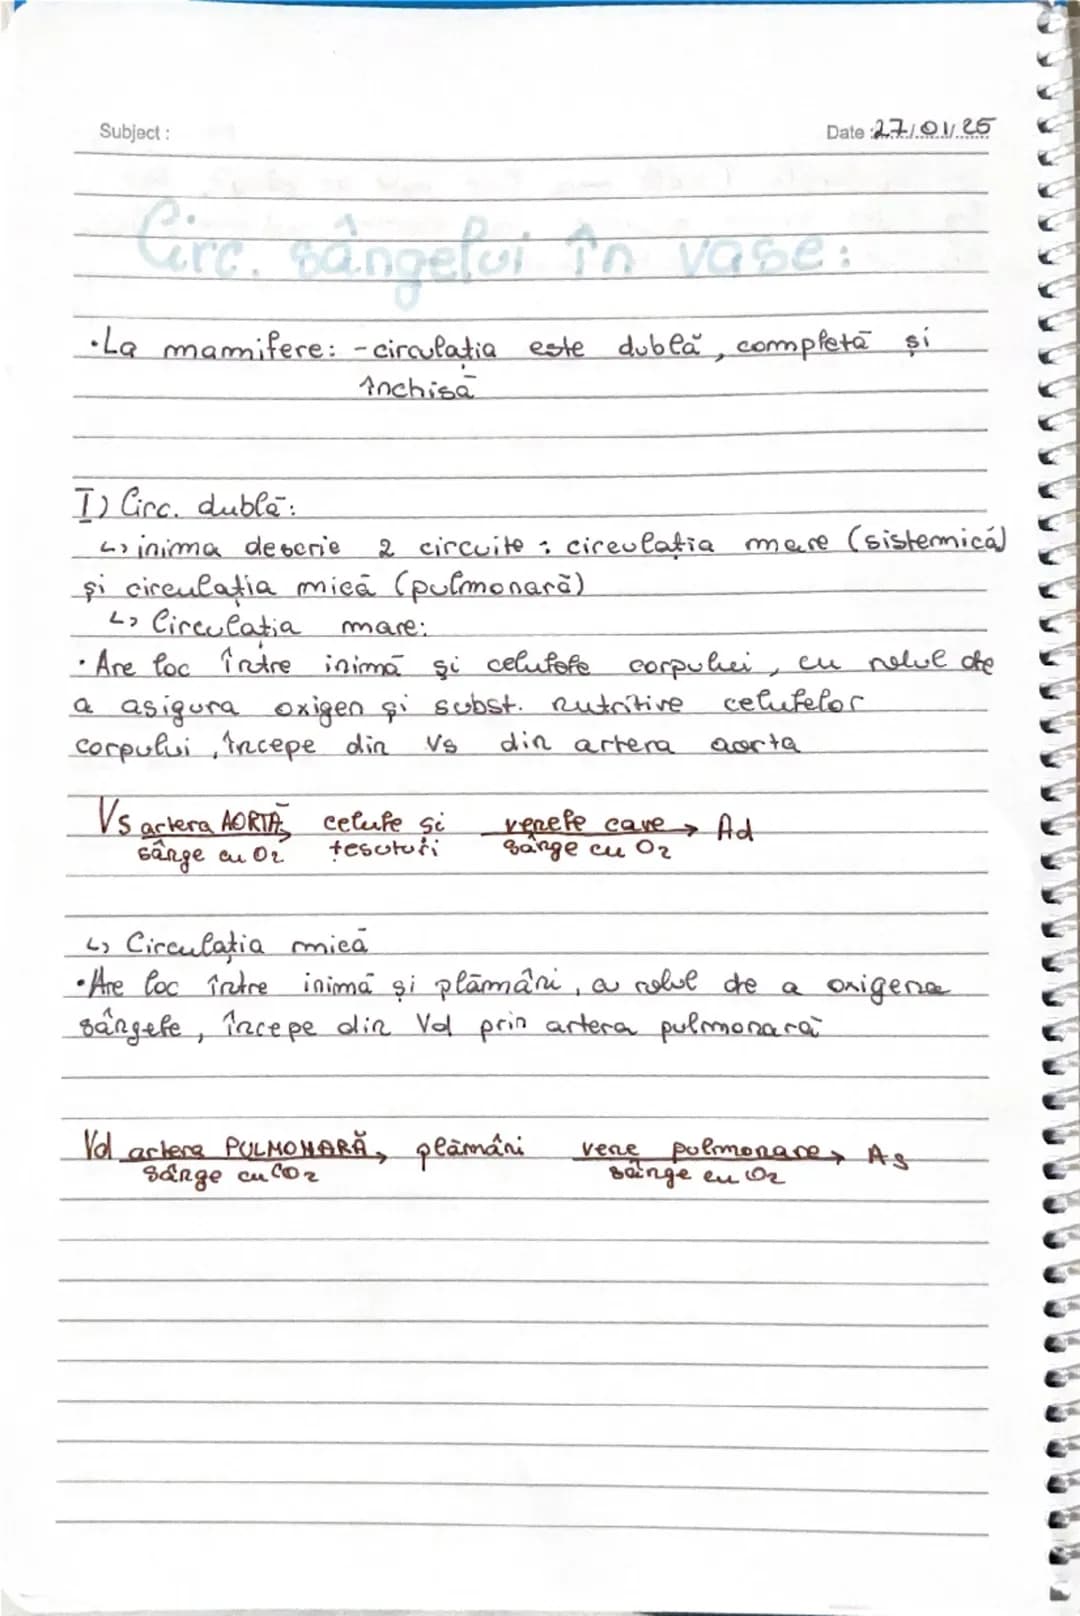 Subject :
Date : 27/01/25
Circ. sângelui în vase:
•La mamifere: - circulația este dublă, completă și
închisă
I) Circ. dublă:
↳ inima descrie 2 circuite : circulația mare (sistemică)
și circulația mică (pulmonară)
↳ Circulația mare:
• Are loc între inimă și celulele corpului, cu rolul de
a asigura oxigen și subst. nutritive celulelor
corpului, începe din Vs din artera aorta
Vs artera AORTĂ celule și venele cave → Ad
sânge cu O2 țesuturi sânge cu O2
↳ Circulația mică
•Are loc între inimă și plămâni, a rolul de a oxigena
sângele, începe din Vd prin artera pulmonară
Vd artera PULMONARĂ, plămâni vene pulmonare → As
sânge cu CO2 sânge cu O2